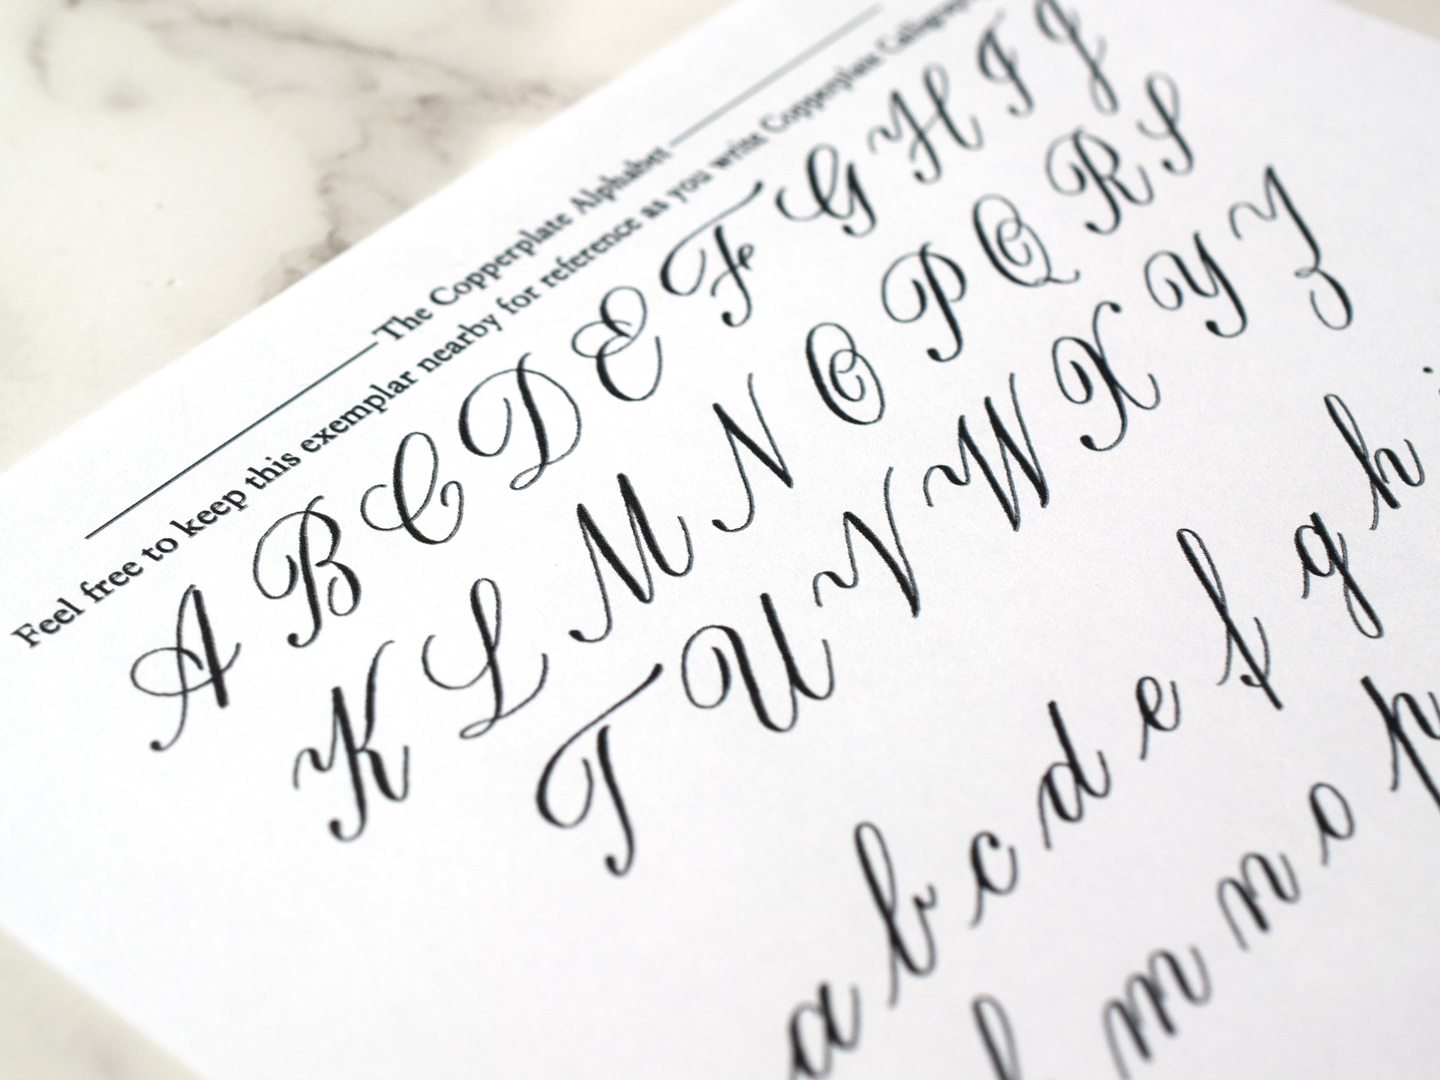 The Copperplate Alphabet
Feel free to keep this exemplar nearby for reference as you write Copperplate
A B C D E F G H I J
K L M N O P Q R S
T U V W X Y Z
a b c d e f g h
l m n o p